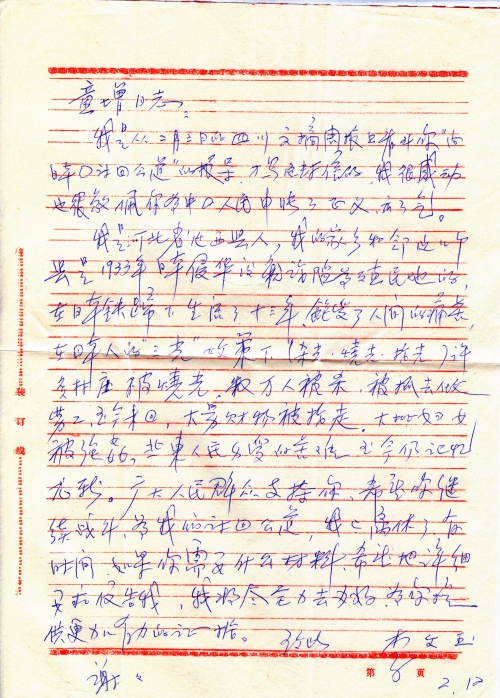 童增同志:
我是从二月三日的四川文摘周报上看到你“向
日本讨回公道”的报导 才写这封信的,我很感动
也很敬佩你为中国人民申张了正义,
我是河北省 西县人,我的家乡和邻近几个
县是1933年日本侵华没 陷为殖民地的,
在日本铁蹄下生活了十三年,饱受了人间的痛苦,
在日本人的“三光”政策下(杀光、烧光、抢光)许
多村庄被烧光,数万人被杀,被抓去做
劳工至今未回,大量财物被抢走。大批妇女
被强奸。 人民 受的苦难 至今仍记忆
尤新。广大人民群众支持你,希望你继
续战斗,为我们讨回公道,我已离休了有
时间 如果你需要什么材料,希 地详细
来信告我,我将尽全力去办好,为你提
供更加有力的证据。 致以
谢
2.12
装订线
第 页